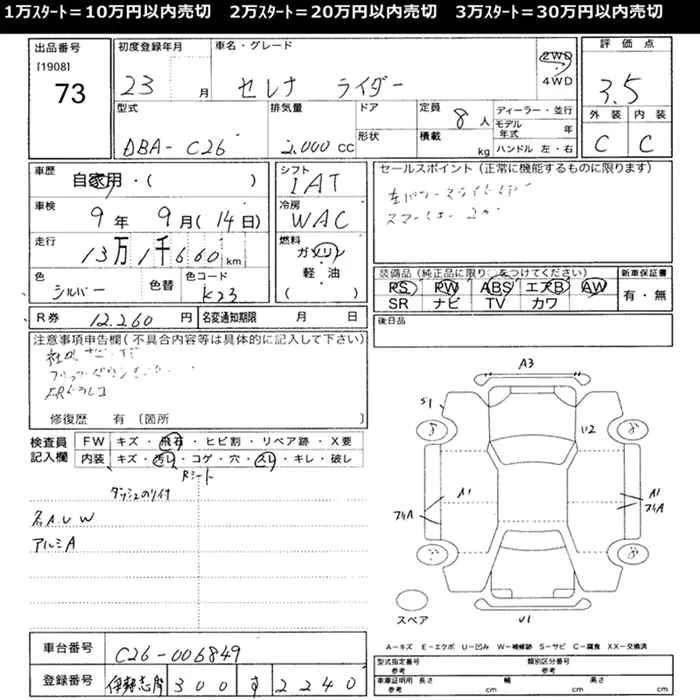 1万ｽﾀｰﾄ＝10万円以内売切　2万ｽﾀｰﾄ＝20万円以内売切　3万ｽﾀｰﾄ＝30万円以内売切
出品番号
[1908]
73
初度登録年月
23 月
車名・グレード
セレナ　ライダー
2WD
4WD
評価点
3.5
外装 内装
C C
型式
DBA-C26
排気量
2,000 CC
ドア
形状
定員
8 人
積載
kg
ディーラー・並行
モデル年式 年
ハンドル 左・右
車歴
自家用・( )
車検
9年 9月(14日)
走行
13万1千660km
色
シルバー
色替
色コード
K23
シフト
IAT
冷房
WAC
燃料
ガソリン
軽・油
( )
セールスポイント(正常に機能するものに限ります)
装備品(純正品に限り、をつけてください)
PS PW ABS エアB AW
SR ナビ TV カワ
新車保証書
有・無
R券 12,260 円
名変通知期限 月 日
後日品
注意事項申告欄(不具合内容等は具体的に記入して下さい)
修復歴 有(箇所 )
検査員
記入欄
FW キズ・飛石・ヒビ割・リペア跡・X要
内装 キズ・汚レ・コゲ・穴・スレ・キレ・破レ
Rシート
ダッシュのり付
各A.U.W
アルミA
A3
S1
U2
A1
A1
アルA
アルA
U1
スペア
A－キズ E－エクボ U－凹み W－補修跡 S－サビ C－腐食 XX－交換済
車台番号
C26-006849
登録番号
伊勢志摩 300 す 2240
型式指定番号
参考
類別区分番号
参考
車庫証明用 長さ
参考 cm
幅
cm
高さ
cm